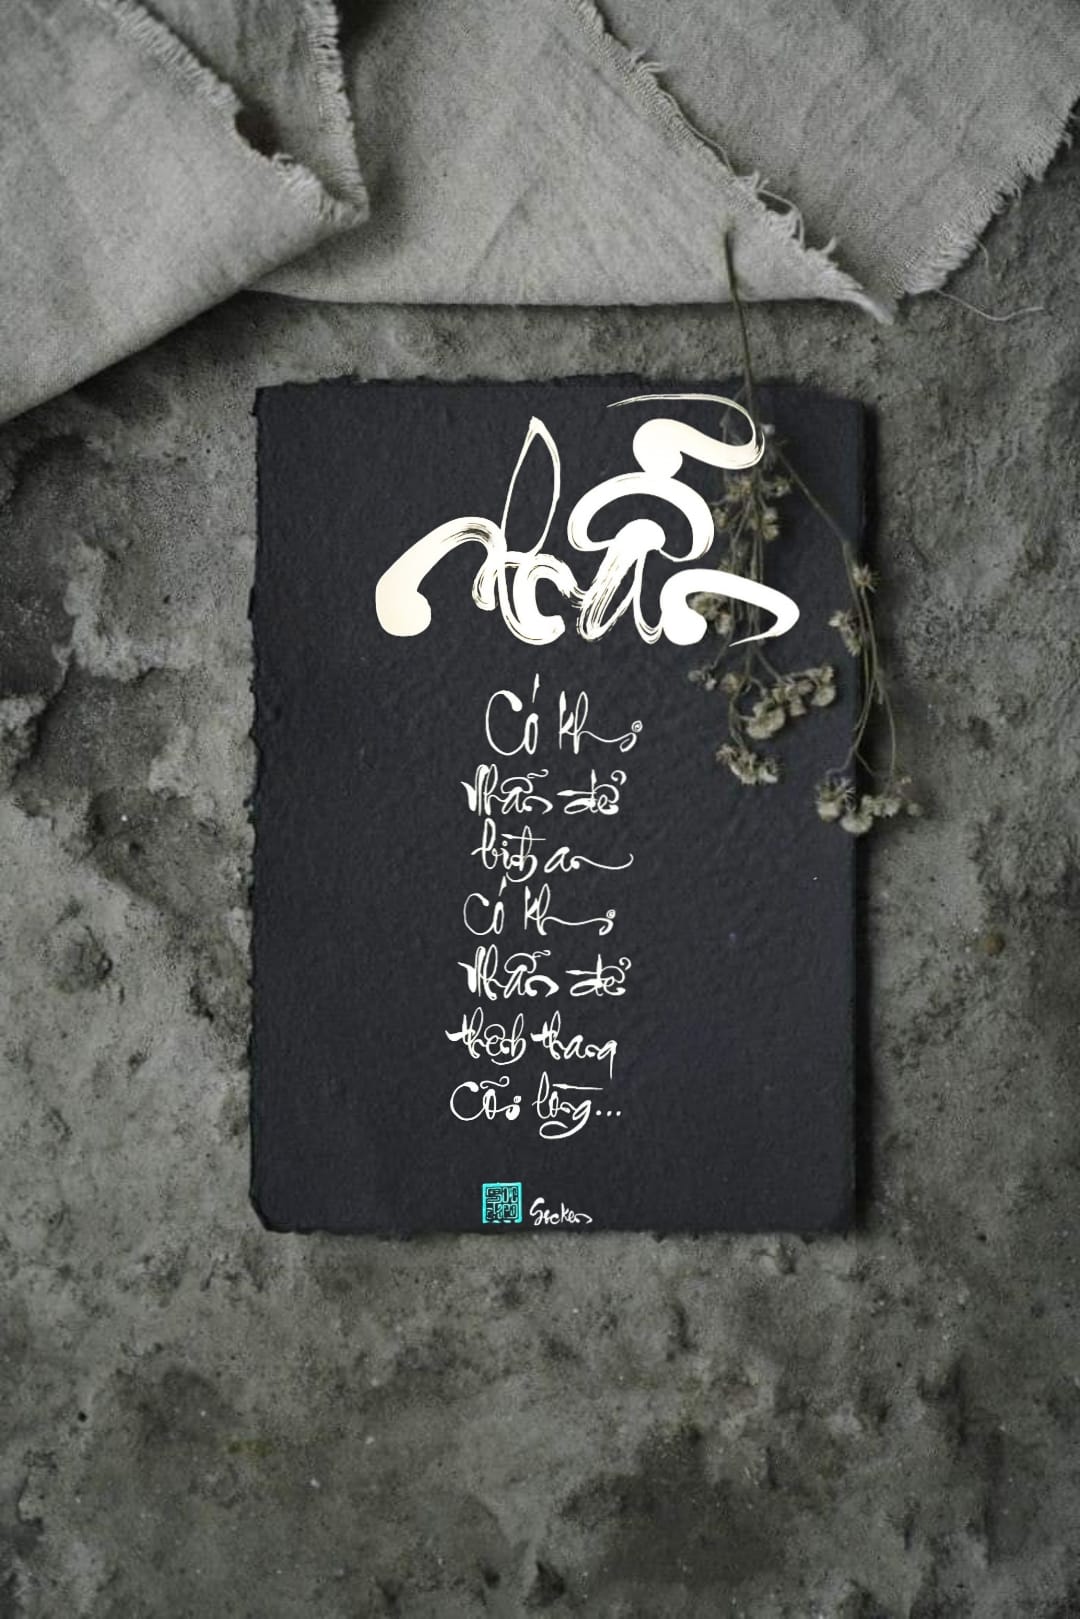 Nhẫn
Có khi
Nhẫn để
bình an
Có khi
Nhẫn để
thênh thang
Cõi lòng...